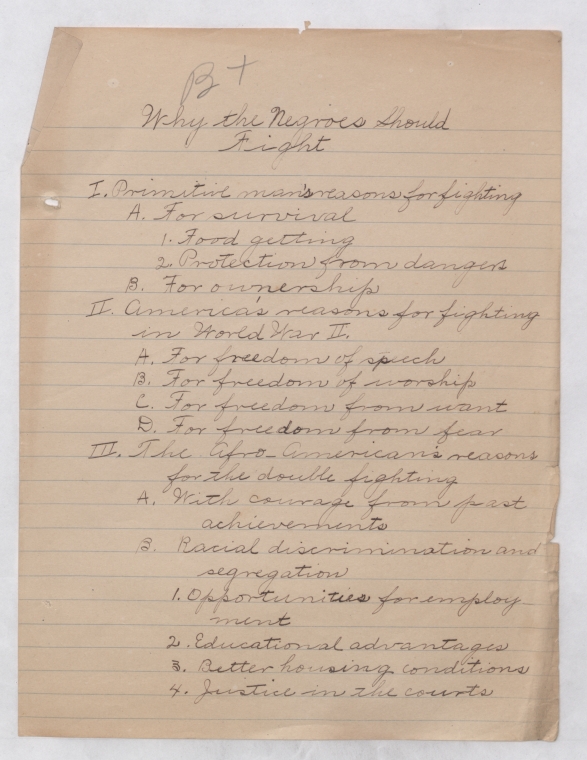 B+
Why the Negroes Should
Fight
I. Primitive man's reasons for fighting
A. For survival
1. Food getting
2. Protection from dangers
B. For ownership
II. America's reasons for fighting
in World War II.
A. For freedom of speech
B. For freedom of worship
C. For freedom from want
D. For freedom from fear
III. The Afro-American's reasons
for the double fighting
A. With courage from past
achievements
B. Racial discrimination and
segregation
1. Opportunities for employ-
ment
2. Educational advantages
3. Better housing conditions
4. Justice in the courts